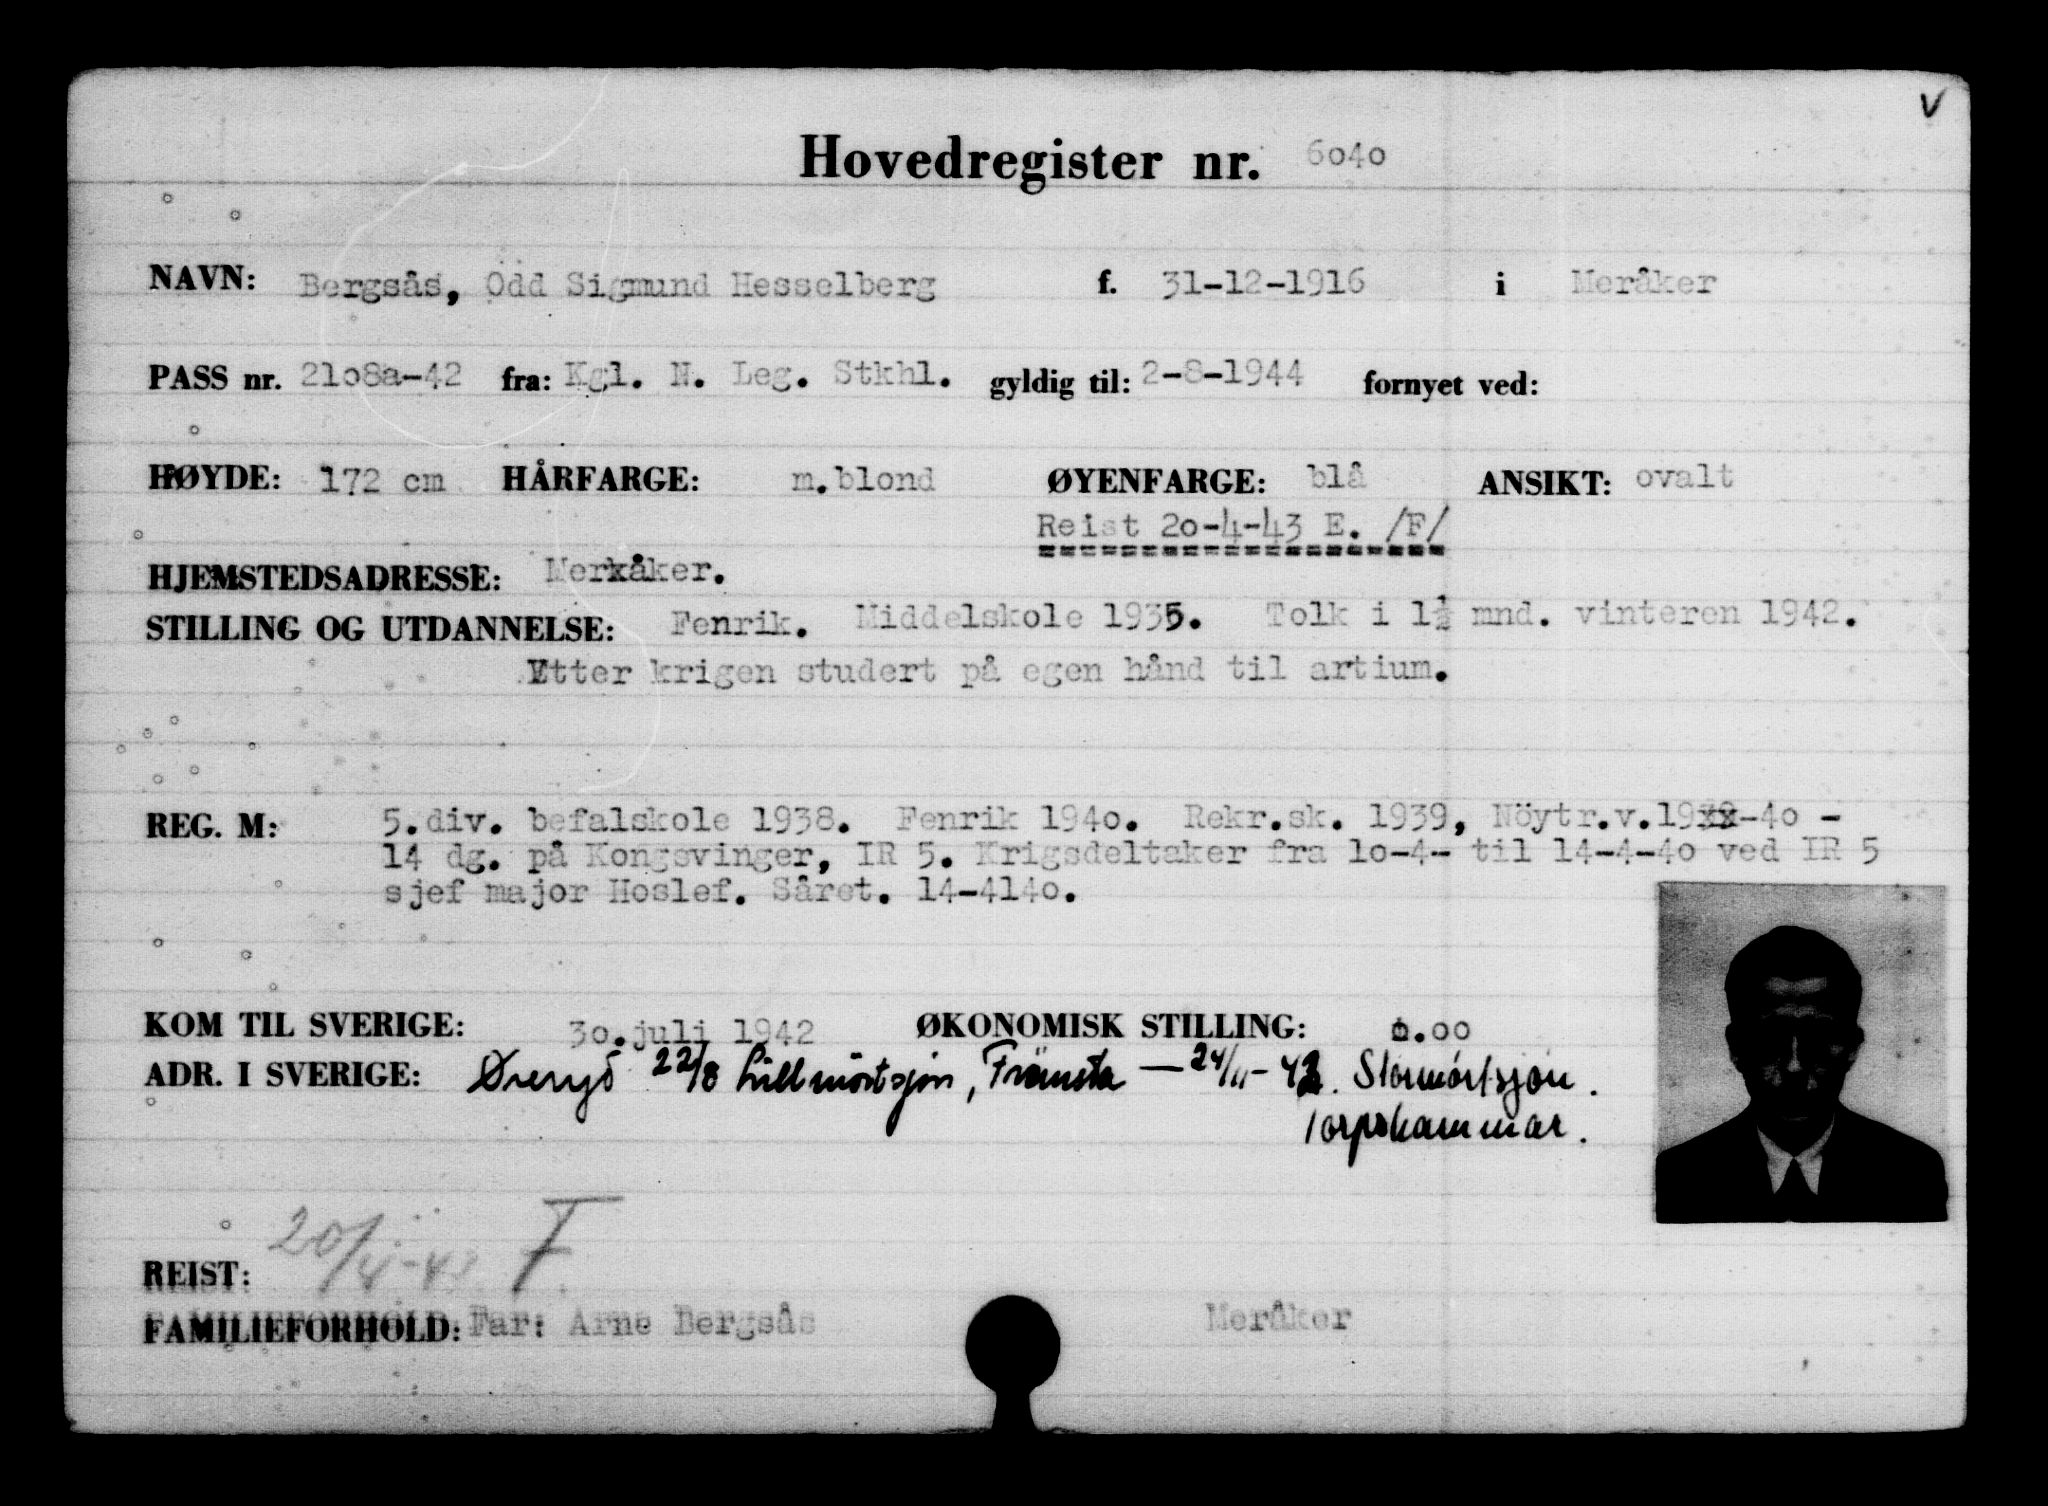 V
Hovedregister nr. 6040
NAVN: Bergsås, Odd Sigmund Hesselberg f. 31-12-1916 i Meråker
PASS nr. 2108a-42 fra: Kgl. N. Leg. Stkhl. gyldig til: 2-8-1944 fornyet ved:
HØYDE: 172 cm HÅRFARGE: m.blond ØYENFARGE: blå ANSIKT: ovalt
Reist 20-4-43 E. /F/
HJEMSTEDSADRESSE: Merxåker.
STILLING OG UTDANNELSE: Fenrik. Middelskole 1935. Tolk i 1½ mnd. vinteren 1942.
Etter krigen studert på egen hånd til artium.
REG. M: 5.div. befalskole 1938. Fenrik 1940. Rekr.sk. 1939, Nöytr.v.19xx-40 -
14 dg. på Kongsvinger, IR 5. Krigsdeltaker fra 10-4- til 14-4-40 ved IR 5
sjef major Hoslef. Såret. 14-4140.
KOM TIL SVERIGE: 30.juli 1942 ØKONOMISK STILLING: 0.00
ADR. I SVERIGE: 22/8 Lillmörtsjön, Fränsta — 24/11-42. Stormörtsjön.
Torpshammar.
REIST: 20/4-43. F.
FAMILIEFORHOLD: Far: Arne Bergsås Meråker